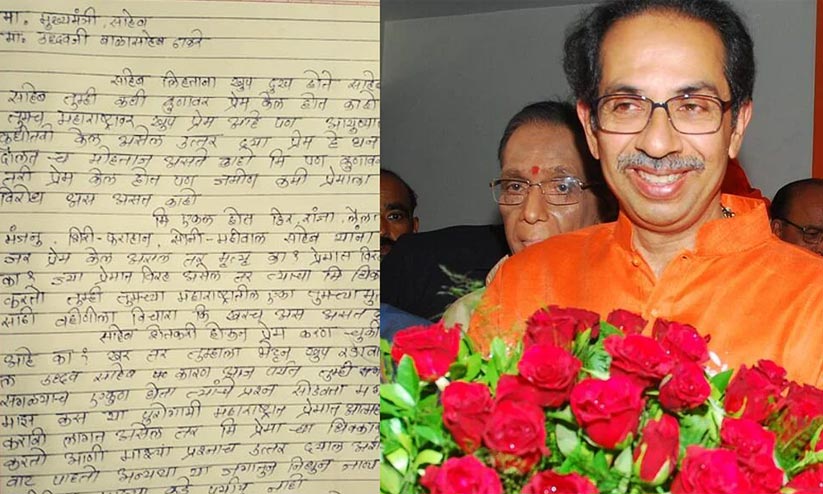 मा. मुख्यमंत्री. साहेब
मा. उद्धवजी बाळासाहेब ठाकरे
साहेब लिहताना खुप दुख होते साहेब
साहेब तुम्ही कधी कुणावर प्रेम केल होत काहो
तुमच महाराष्ट्रावर खुप प्रेम आहे पण आयुष्यात
कधीतरी केल असेल उत्तर द्या प्रेम हे धन
दौलत च मोहताज असते काहो मि पण कुणावर
तरी प्रेम केल होत पण जमीन कमी प्रेमाला
विरोध अस असत काहो
मि ऐकल होत हिर, रांजा, लैला
मंजनु, शिरी-फराहान, सोनी-महीवाल साहेब यांना
जर प्रेम केल असल तर मृत्यू का? प्रेमात विरह
का? ज्या प्रेमान विरह असेल तर त्याचा मि धिक्कार
करतो तुम्ही तुमच्या महाराष्ट्रातील एका तुमच्या
साठी वहीणीला विचारा कि खरच अस असत
साहेब शेतकरी होऊन प्रेम करण चुकी
आहे का? खर तर तुम्हाला भेटुन खुप रडाव
ला उद्धव साहेब कारण आज पर्यंत तुम्ही
सगळ्याच ऐकुण घेता त्यांचे प्रश्न सोडवता
माझ कस या पुरोगामी महाराष्ट्रात प्रेमात
करावी लागत असेल तर मि प्रेमा चा धिक्कार
करतो आणी माझ्या प्रश्नाच उत्तर द्याल अशी
वाट पाहतो अन्यथा या जगातुन निघुन जाव
कडे पर्याय नाही